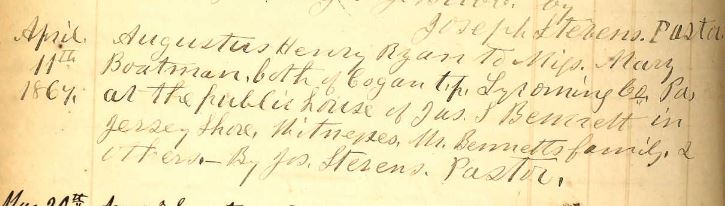 by
Joseph Stevens. Pastor.
April. Augustus Henry Ryan to Miss. Mary
11th Boatman. both of Cogan tp. Lycoming Co. Pa,
1867. at the public house of Jas. S Bennett in
Jersey Shore. Witnesses. Mr. Bennetts family. &
others.— By Jos. Stevens. Pastor.